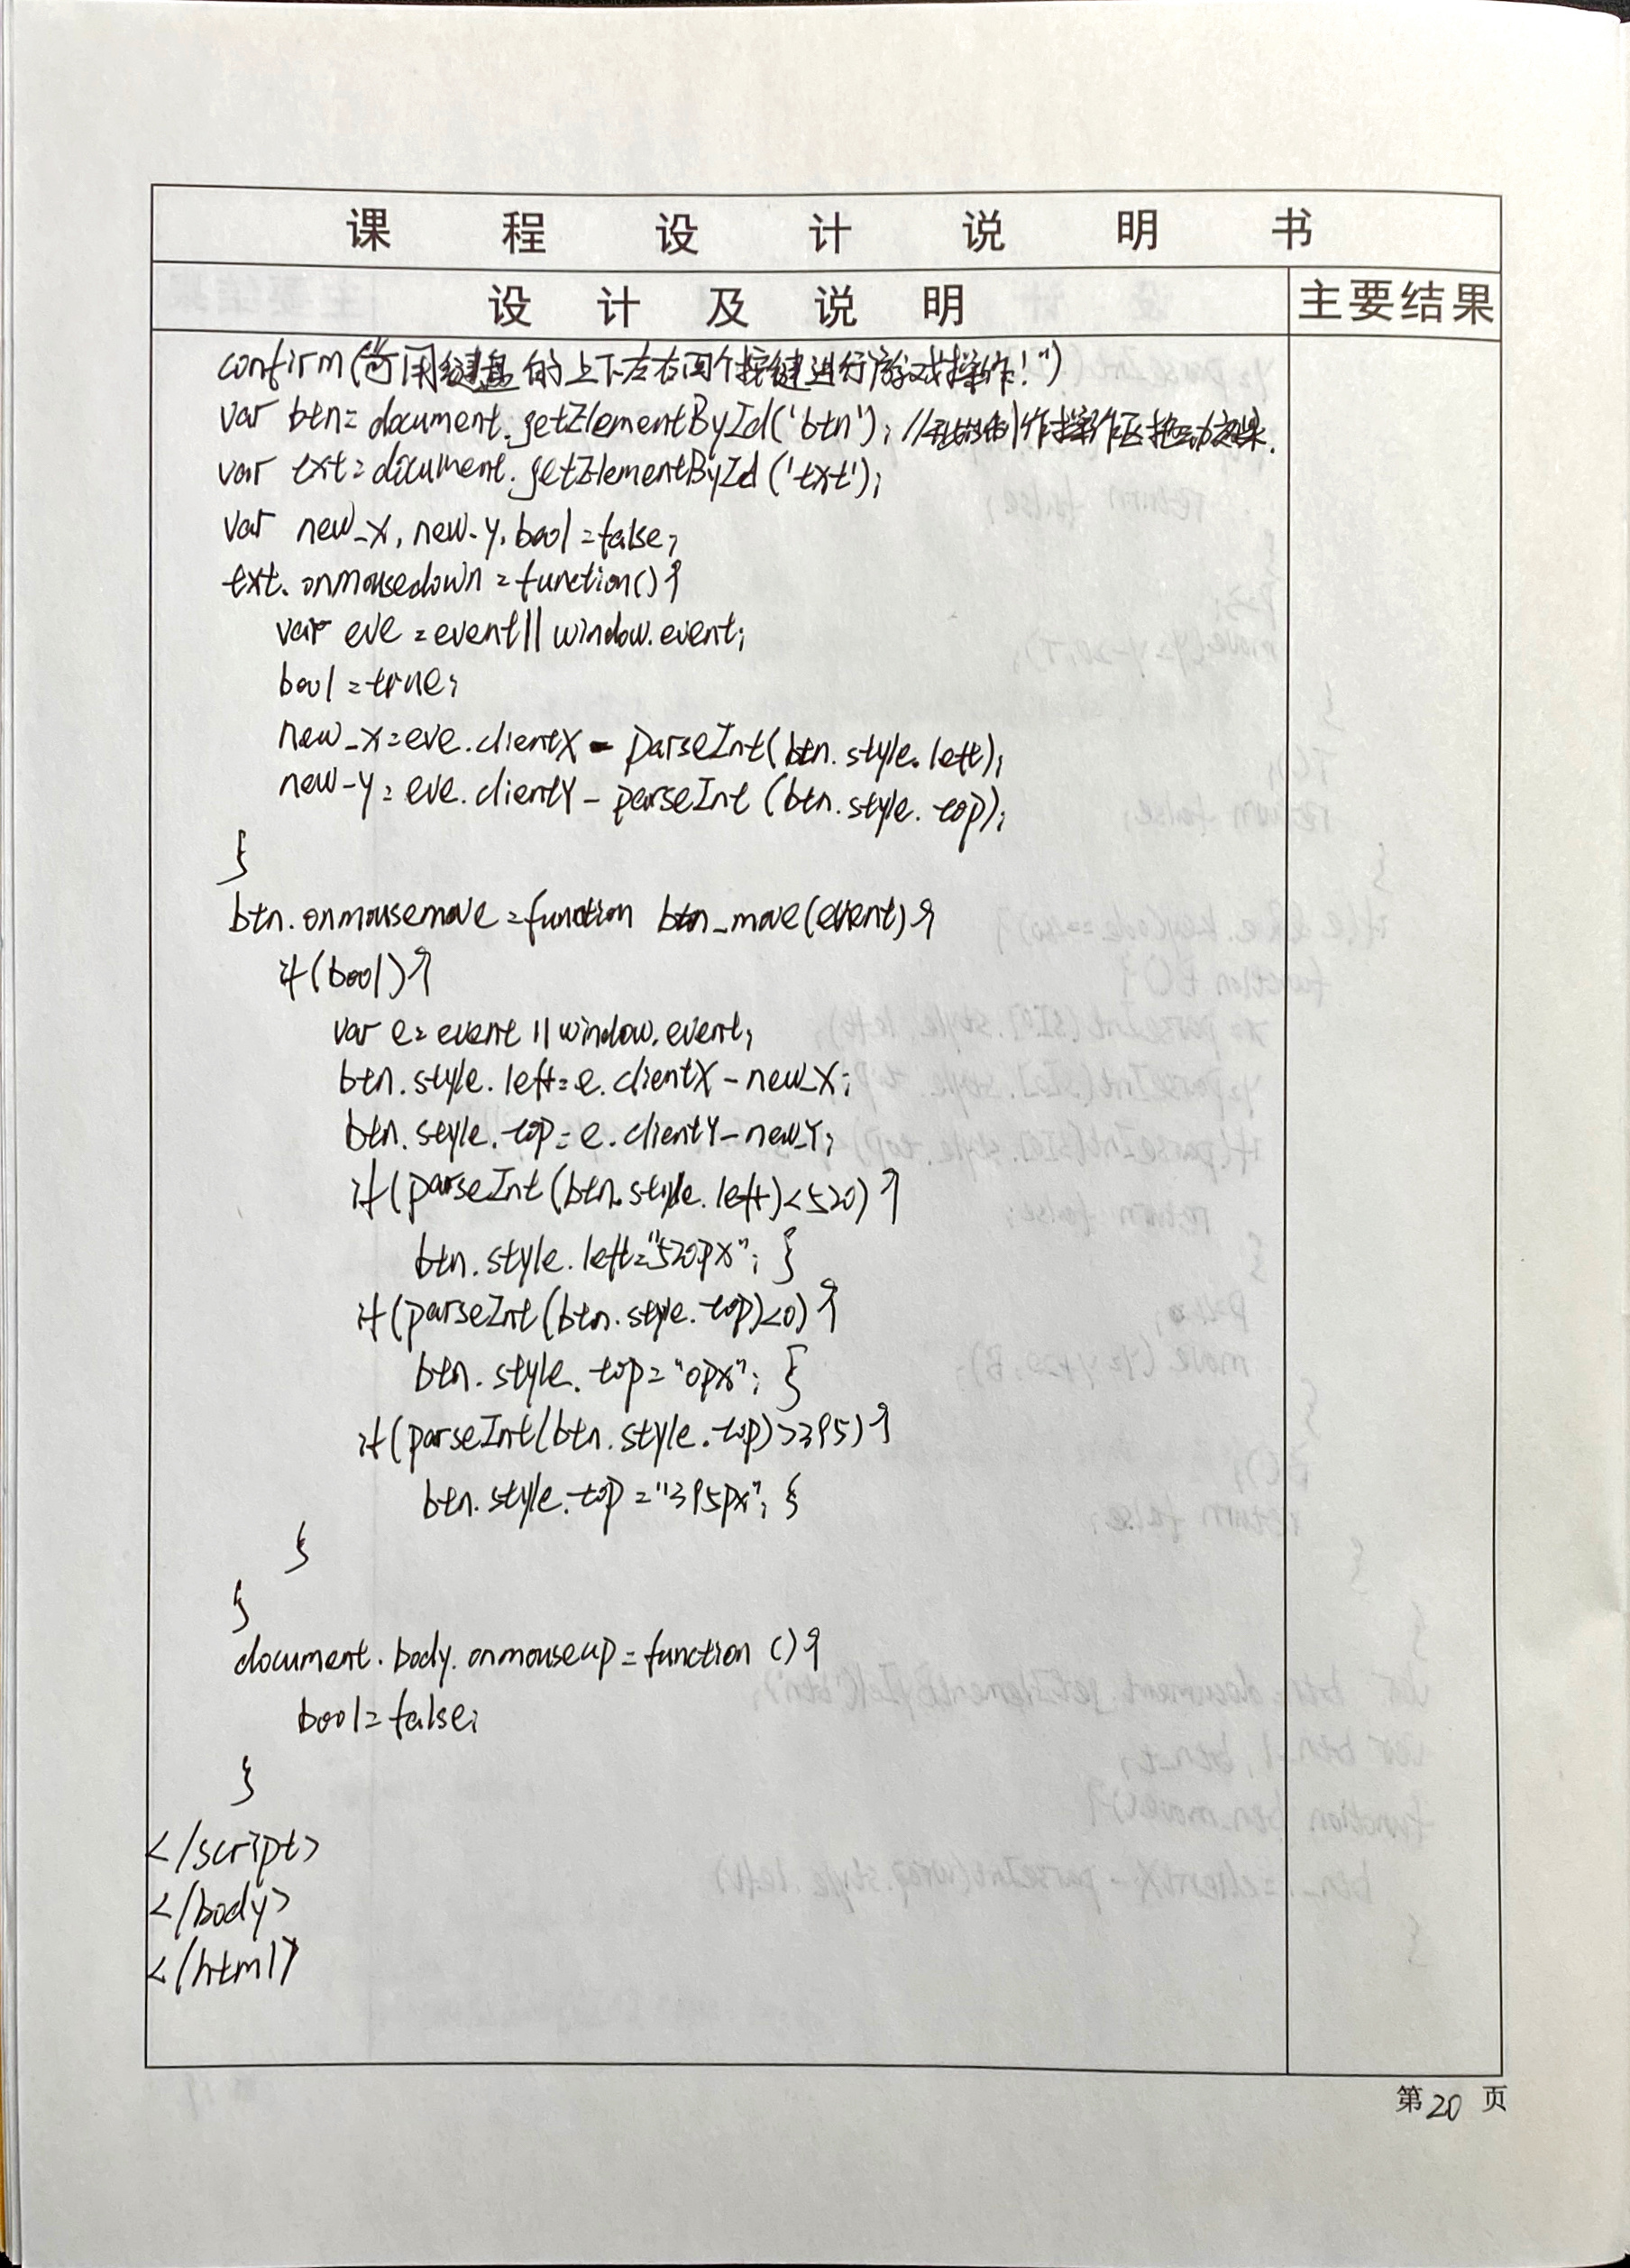 课程设计说明书
设计及说明 主要结果
confirm("可用键盘的上下左右四个按键进行游戏操作!")
var btn=document.getElementById('btn'); //作操作区拖动效果.
var txt=document.getElementById('txt');
var new_x,new_y,bool=false;
txt.onmousedown=function(){
var eve=event||window.event;
bool=true;
new_x=eve.clientX-parseInt(btn.style.left);
new_y=eve.clientY-parseInt(btn.style.top);
}
btn.onmousemove=function btn_move(event){
if(bool){
var e=event||window.event;
btn.style.left=e.clientX-new_x;
btn.style.top=e.clientY-new_y;
if(parseInt(btn.style.left)<520){
btn.style.left="520px"; }
if(parseInt(btn.style.top)<0){
btn.style.top="0px"; }
if(parseInt(btn.style.top)>395){
btn.style.top="395px"; }
}
}
document.body.onmouseup=function(){
bool=false;
}
</script>
</body>
</html>
第20页